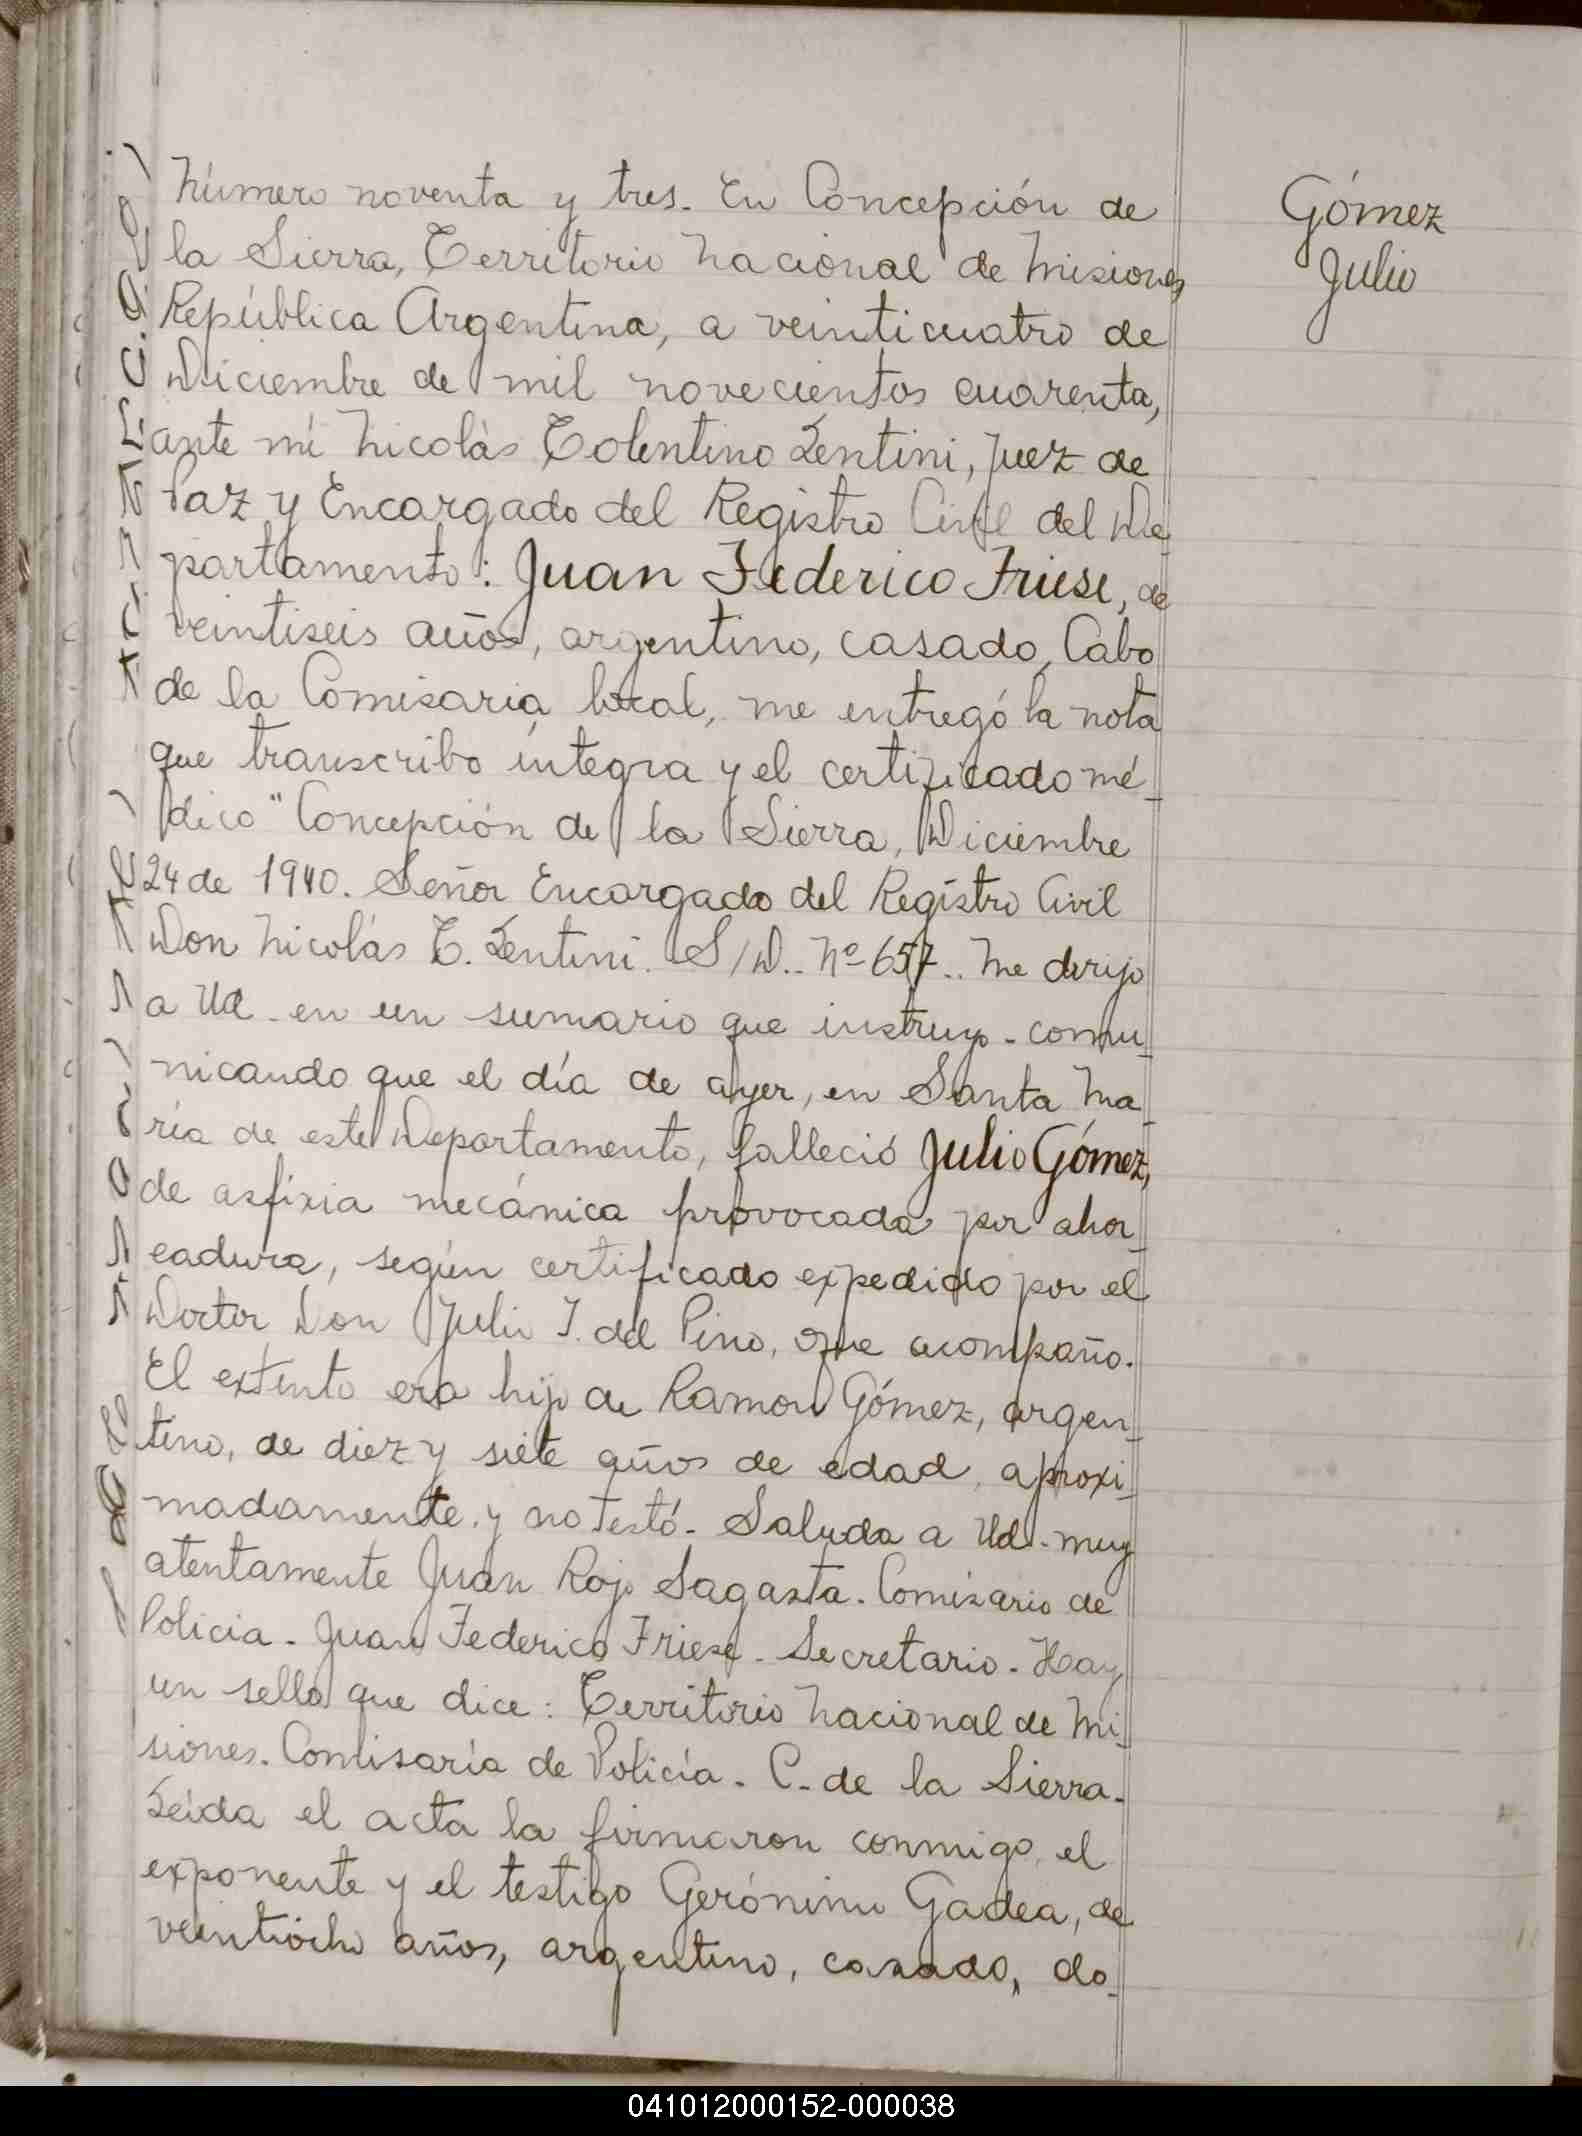 Número noventa y tres. En Concepción de
la Sierra, Territorio Nacional de Misiones
República Argentina, a veinticuatro de
Diciembre de mil novecientos cuarenta,
ante mí Nicolás Tolentino Lentini, Juez de
Paz y Encargado del Registro Civil del De_
partamento: Juan Federico Friese, de
veintiseis años, argentino, casado, Cabo
de la Comisaria local, me entregó la nota
que transcribo íntegra y el certificado mé_
dico "Concepción de la Sierra, Diciembre
24 de 1940. Señor Encargado del Registro Civil
Don Nicolás T. Lentini. S/D.. Nº 657.. Me dirijo
a Ud. en un sumario que instruyo - comu_
nicando que el día de ayer, en Santa Ma_
ría de este Departamento, falleció Julio Gómez,
de asfixia mecánica provocada por ahor_
cadura, según certificado expedido por el
Doctor Don Julio J. del Pino, que acompaño.
El extinto era hijo de Ramon Gómez, argen_
tino, de diez y siete años de edad, aproxi_
madamente y no testó. Saluda a Ud. muy
atentamente Juan Rojo Sagasta. Comisario de
Policia. Juan Federico Friese. Secretario. Hay
un sello que dice: Territorio Nacional de Mi_
siones. Comisaría de Policía. C. de la Sierra.
Leída el acta la firmaron conmigo, el
exponente y el testigo Gerónimo Gadea, de
veintiocho años, argentino, casado, do_
Gómez
Julio
041012000152-000038